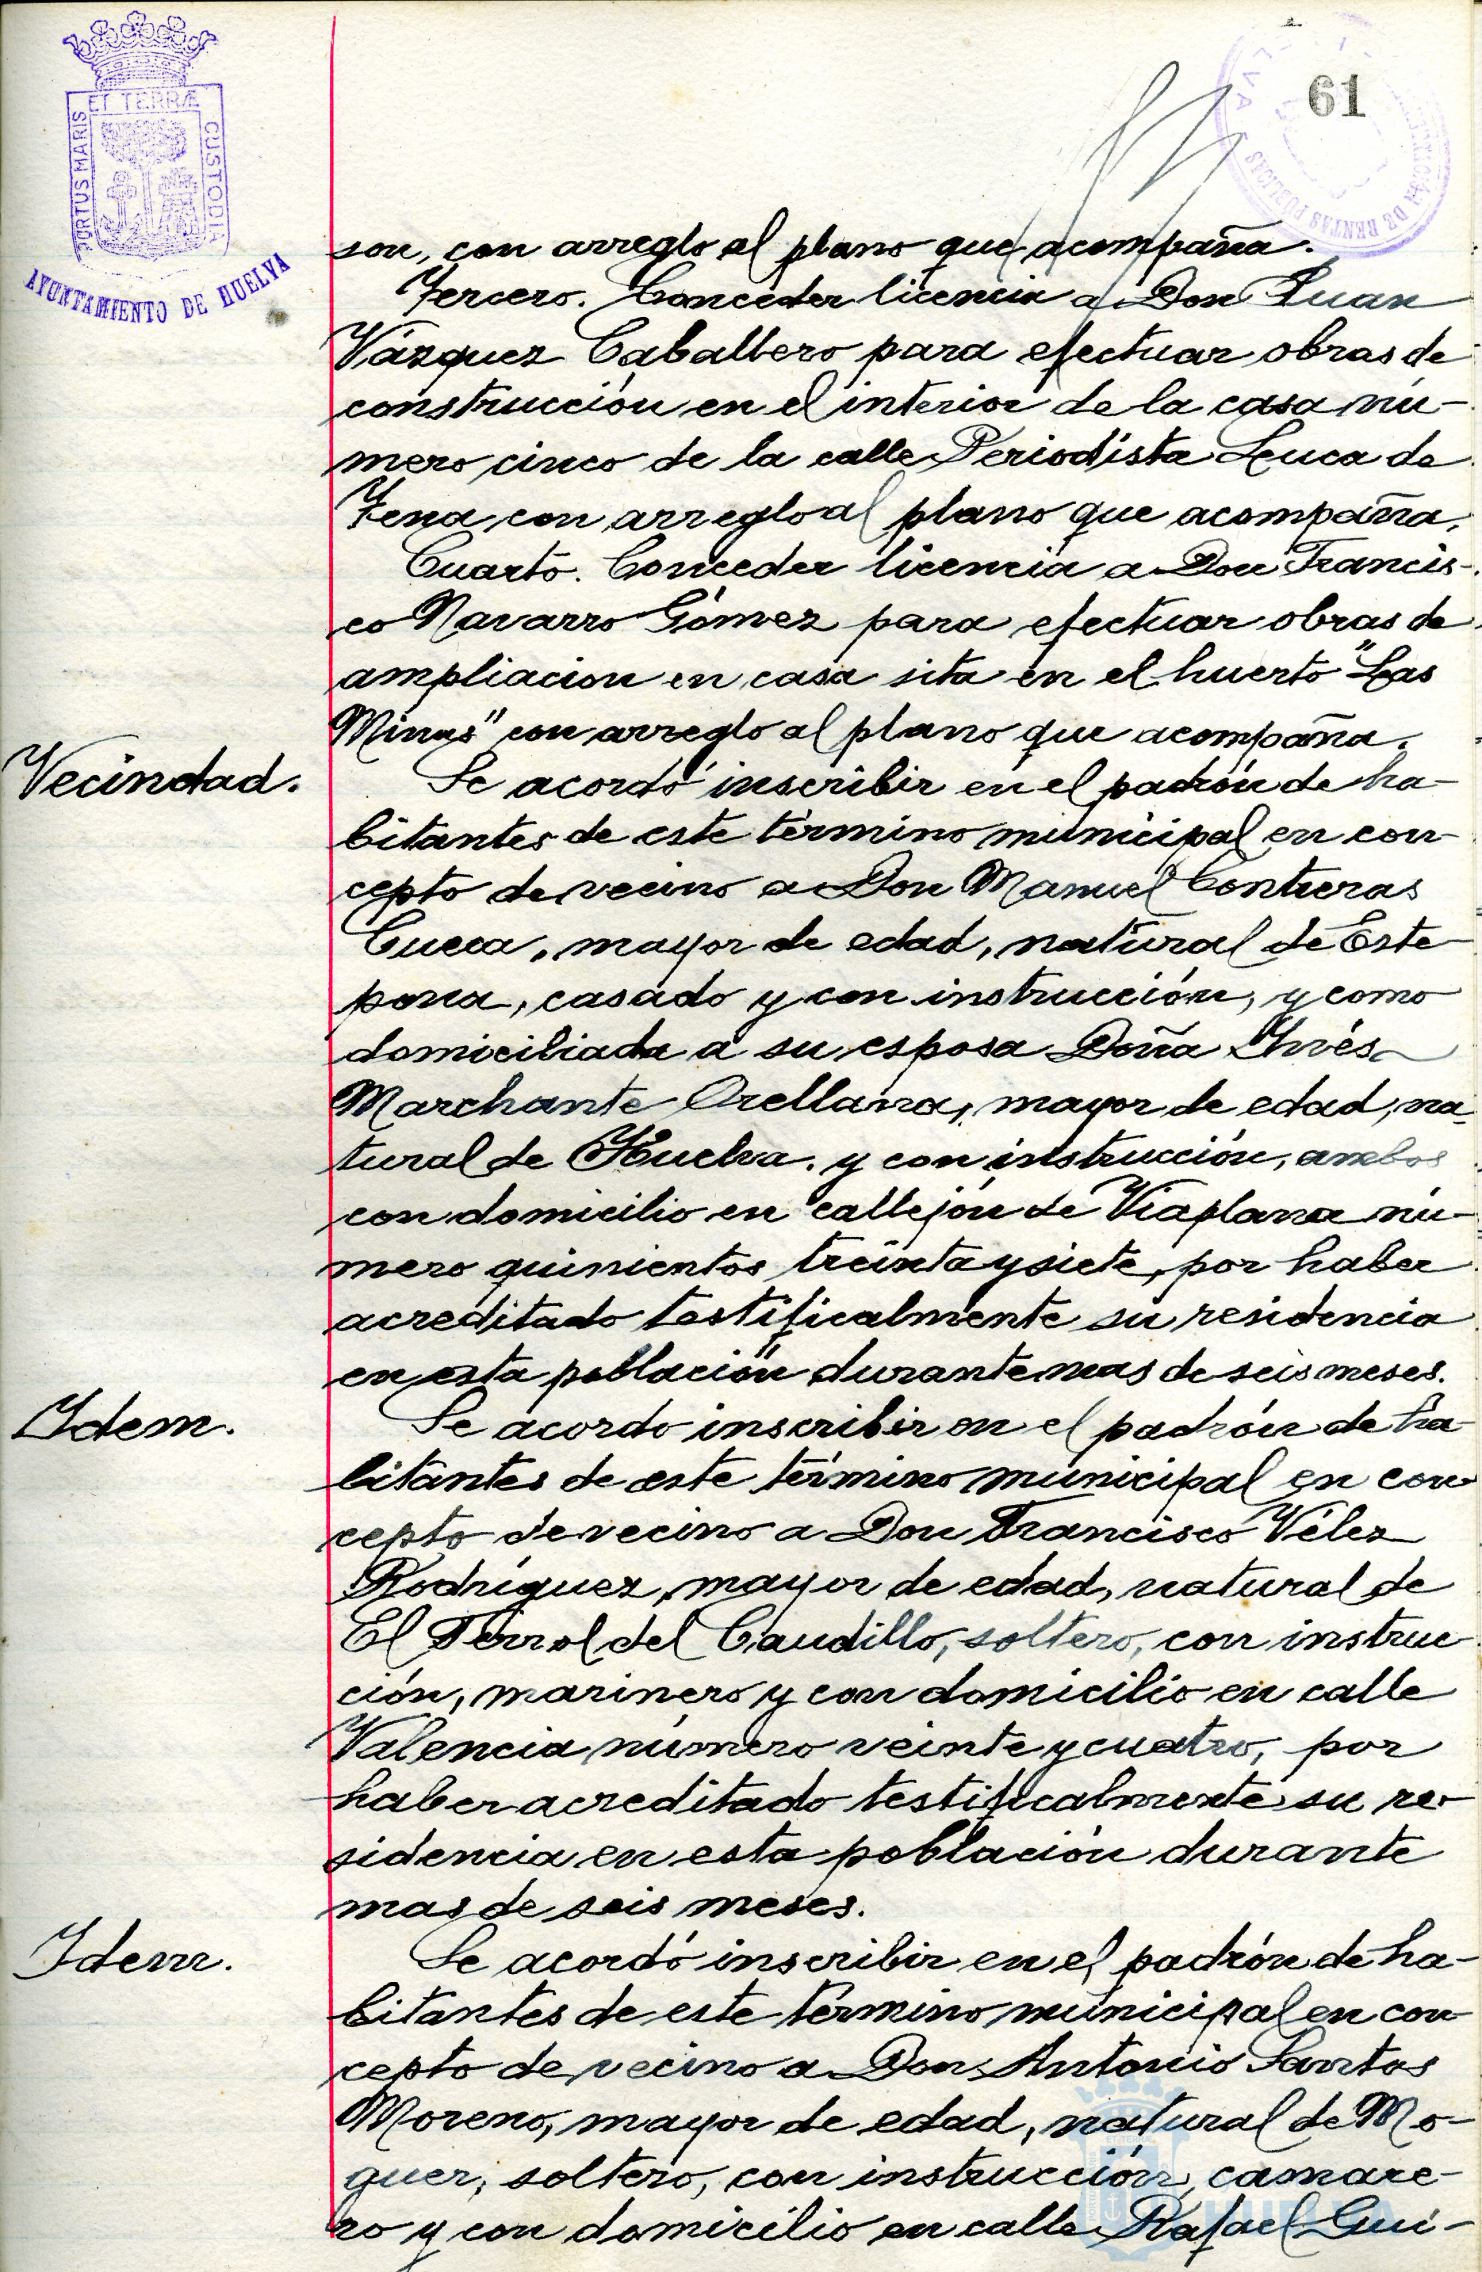 PORTUS MARIS ET TERRÆ CUSTODIA
AYUNTAMIENTO DE HUELVA
61
DE RENTAS PUBLICAS
son, con arreglo al plano que acompaña.
Tercero. Conceder licencia a Don Juan
Vázquez Caballero para efectuar obras de
construcción en el interior de la casa nú-
mero cinco de la calle Periodista Luca de
Tena, con arreglo al plano que acompaña.
Cuarto. Conceder licencia a Don Francis-
co Navarro Gómez para efectuar obras de
ampliacion en casa sita en el huerto "Las
Minas" con arreglo al plano que acompaña.
Vecindad.
Se acordó inscribir en el padrón de ha-
bitantes de este término municipal en con-
cepto de vecino a Don Manuel Contreras
Cueca, mayor de edad, natural de Este-
pona, casado y con instrucción, y como
domiciliada a su esposa Doña Inés
Marchante Orellana, mayor de edad, na-
tural de Huelva, y con instrucción, ambos
con domicilio en callejón de Viaplana nú-
mero quinientos treinta y siete, por haber
acreditado testificalmente su residencia
en esta población durante mas de seis meses.
Idem.
Se acordo inscribir en el padrón de ha-
bitantes de este término municipal en con-
cepto de vecino a Don Francisco Vélez
Rodríguez, mayor de edad, natural de
El Ferrol del Caudillo, soltero, con instruc-
ción, marinero y con domicilio en calle
Valencia número veinte y cuatro, por
haber acreditado testificalmente su re-
sidencia en esta población durante
mas de seis meses.
Idem.
Se acordó inscribir en el padrón de ha-
bitantes de este término municipal en con-
cepto de vecino a Don Antonio Santos
Moreno, mayor de edad, natural de Mo-
guer, soltero, con instrucción, camare-
ro y con domicilio en calle Rafael Gui-
HUELVA